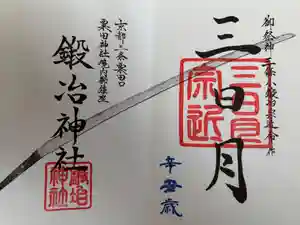 御祭神 三條小鍛冶宗近命 作
三日月
三日月
宗近
辛丑歳
京都三条粟田口
粟田神社境内鎮座
鍛冶神社
鍛冶
神社